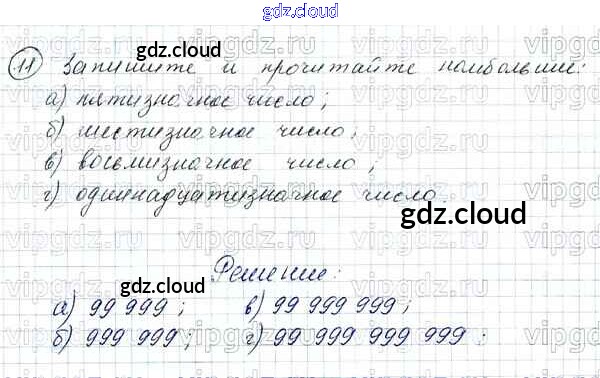 gdz.cloud
gdz.cloud
11 Запишите и прочитайте наибольшие:
а) пятизначное число;
б) шестизначное число;
в) восьмизначное число;
г) одиннадцатизначное число.
gdz.cloud
Решение:
gdz.cloud
а) 99 999; в) 99 999 999;
б) 999 999; г) 99 999 999 999.
gdz.cloud